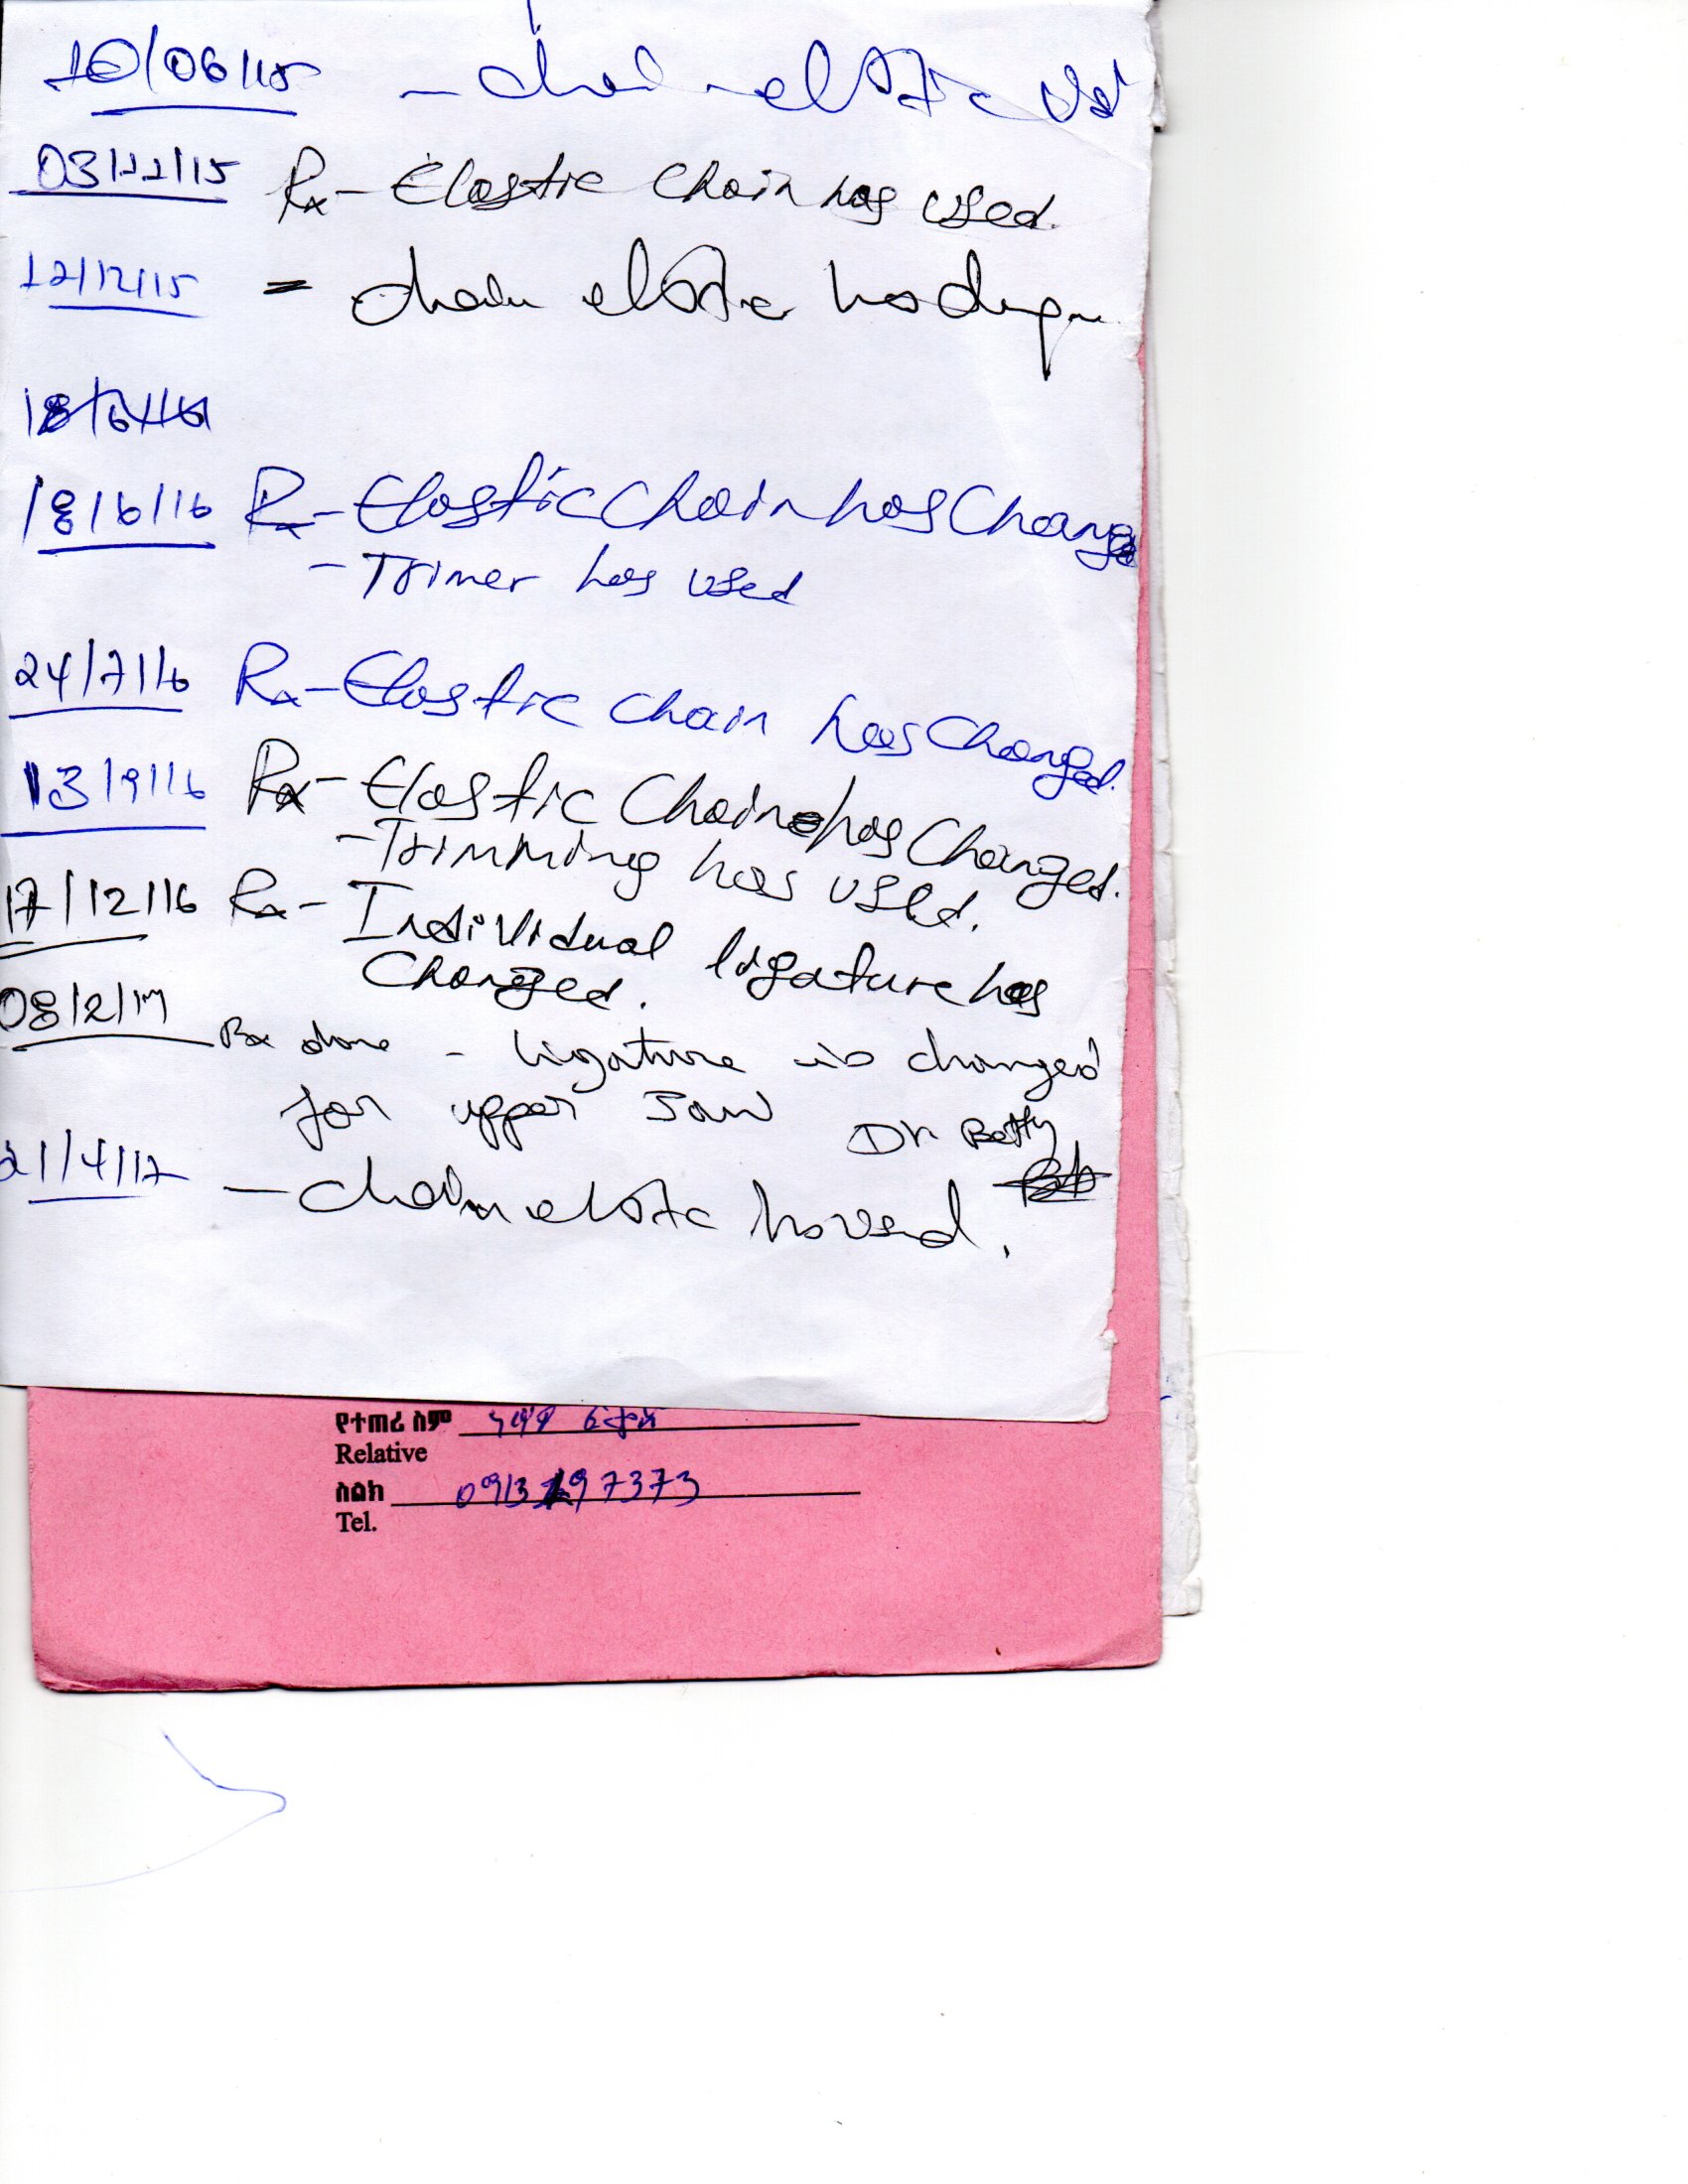 10/06/15 - chain elastic used
03/11/15 Rx- Elastic Chain has used.
12/12/15 = chain elastic has
18/6/16
18/6/16 Rx- Elastic Chain has Change
- Trimer has used
24/7/16 Rx- Elastic Chain has Changed.
13/9/16 Rx- Elastic Chain has Changed.
- Trimming has used.
17/12/16 Rx- Individual ligature has
Changed.
08/2/17 Rx done - ligature is changed
for upper Jaw
Dr Betty
21/4/17 - chain elastic has used.
የተጠሪ ስም
Relative
ስልክ 0913 197373
Tel.